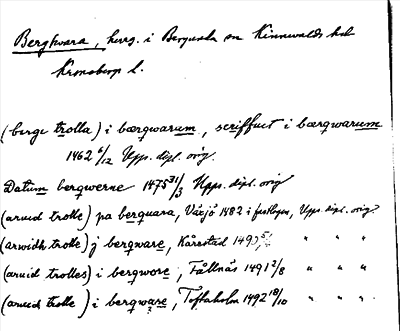 Bergkvara, herrg. i Bergunda sn Kinnevalds hd
Kronobergs l.
(berge trolla) i bærqwarum, scriffuet i bærqwarum
1462 6/12 Upps. dipl. orig.
Datum berqwerne 1475 31/3 Upps. dipl. orig
(arvid trolle) pa berquara, Växjö 1482 i fastlagen, Upps. dipl. orig.
(arwidh trolle) j bergware, Kårestad 149
(arvid trolles) i bergwore, Fållnäs 1491 2/8 " " "
(arvid trolle) i bergware, Toftaholm 1492 18/10 " " "